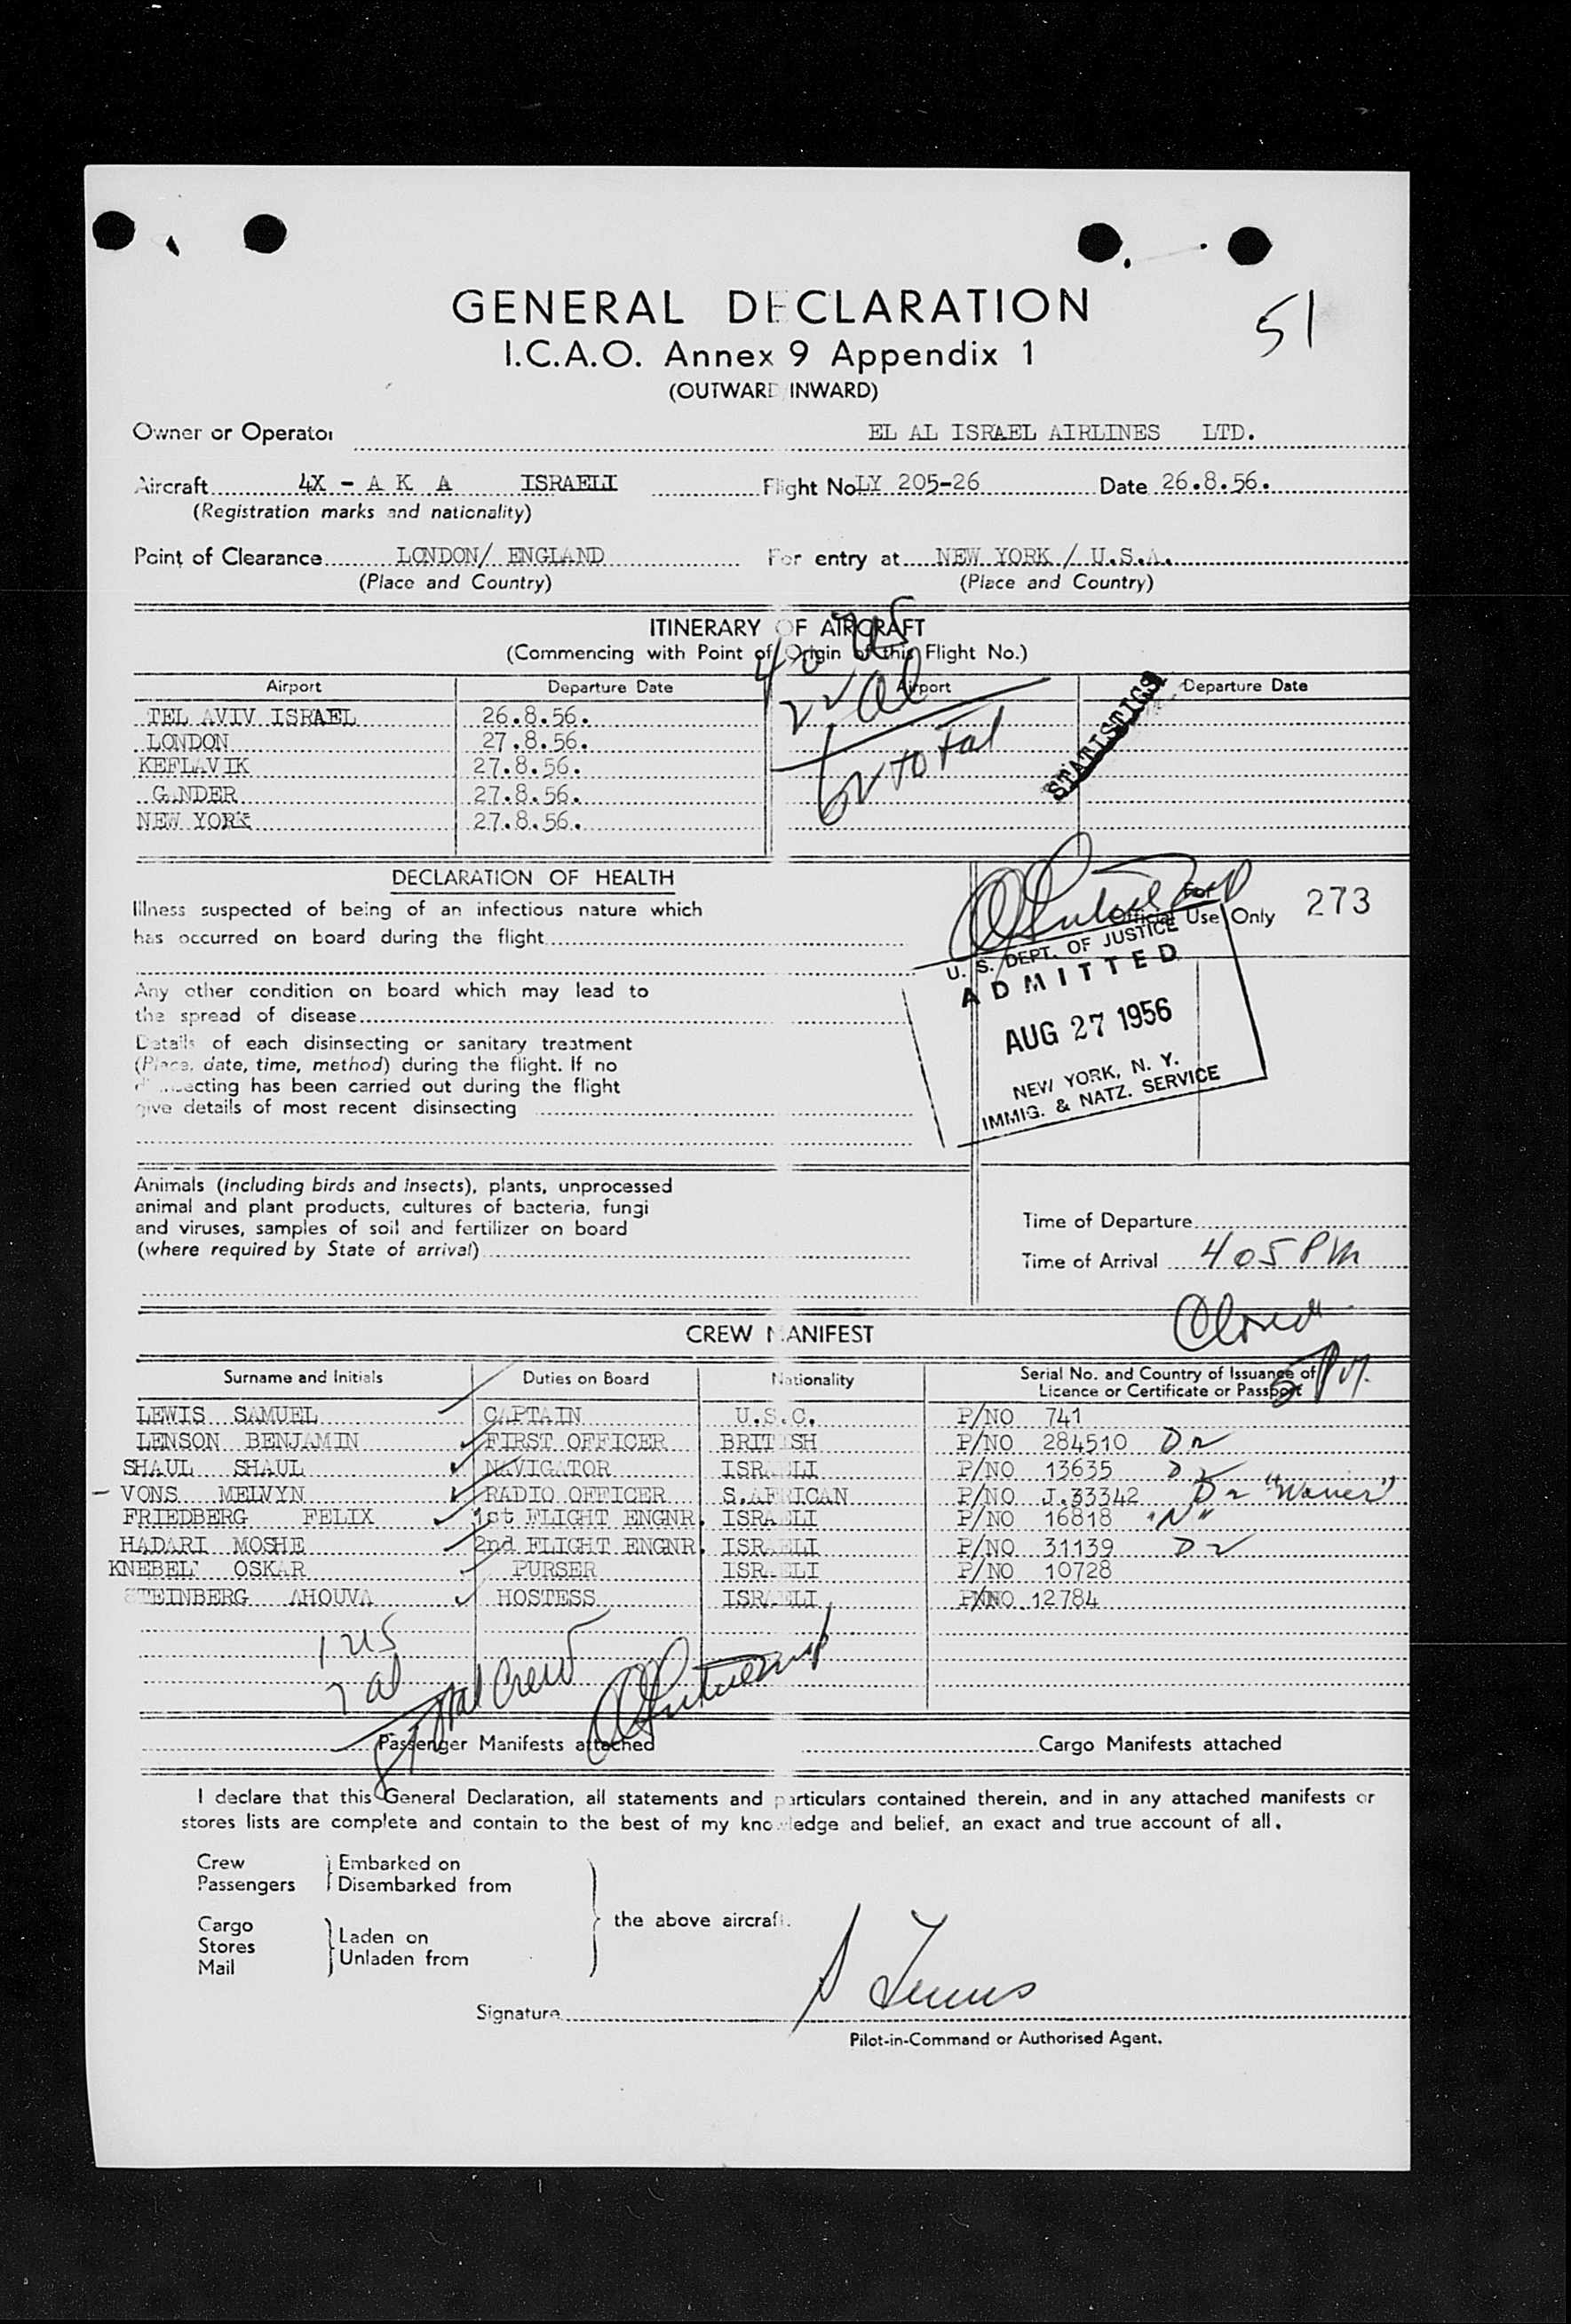 51
GENERAL DECLARATION
I.C.A.O. Annex 9 Appendix 1
(OUTWARD INWARD)
Owner or Operator EL AL ISRAEL AIRLINES LTD.
Aircraft 4X - A K A ISRAELI Flight No LY 205-26 Date 26.8.56.
(Registration marks and nationality)
Point of Clearance LONDON/ ENGLAND For entry at NEW YORK / U.S.A.
(Place and Country) (Place and Country)
ITINERARY OF AIRCRAFT
(Commencing with Point of Origin of this Flight No.)
40 US
22 al
62 total
STATISTICS
Airport Departure Date Airport Departure Date
TEL AVIV ISRAEL 26.8.56.
LONDON 27.8.56.
KEFLAVIK 27.8.56.
GANDER 27.8.56.
NEW YORK 27.8.56.
DECLARATION OF HEALTH
Illness suspected of being of an infectious nature which
has occurred on board during the flight
Any other condition on board which may lead to
the spread of disease
Details of each disinsecting or sanitary treatment
(Place, date, time, method) during the flight. If no
disinsecting has been carried out during the flight
give details of most recent disinsecting
For
Official Use Only 273
U. S. DEPT. OF JUSTICE
ADMITTED
AUG 27 1956
NEW YORK, N. Y.
IMMIG. & NATZ. SERVICE
Animals (including birds and insects), plants, unprocessed
animal and plant products, cultures of bacteria, fungi
and viruses, samples of soil and fertilizer on board
(where required by State of arrival)
Time of Departure
Time of Arrival 405 PM
Closed
5 PM.
CREW MANIFEST
Surname and Initials Duties on Board Nationality Serial No. and Country of Issuance of
Licence or Certificate or Passport
LEWIS SAMUEL CAPTAIN U.S.C. P/NO 741
LENSON BENJAMIN FIRST OFFICER BRITISH P/NO 284510 D2
SHAUL SHAUL NAVIGATOR ISRAELI P/NO 13635 D2
- VONS MELVYN RADIO OFFICER S.AFRICAN P/NO J.33342 D2 "Waiver"
FRIEDBERG FELIX 1st FLIGHT ENGNR. ISRAELI P/NO 16818 "N"
HADARI MOSHE 2nd FLIGHT ENGNR. ISRAELI P/NO 31139 D2
KNEBEL OSKAR PURSER ISRAELI P/NO 10728
STEINBERG AHOUVA HOSTESS ISRAELI P/NO 12784
1 US
7 al
8 total Crew
Passenger Manifests attached Cargo Manifests attached
I declare that this General Declaration, all statements and particulars contained therein, and in any attached manifests or
stores lists are complete and contain to the best of my knowledge and belief, an exact and true account of all.
Crew Embarked on
Passengers Disembarked from
the above aircraft.
Cargo
Stores Laden on
Mail Unladen from
Signature S Lewis
Pilot-in-Command or Authorised Agent.